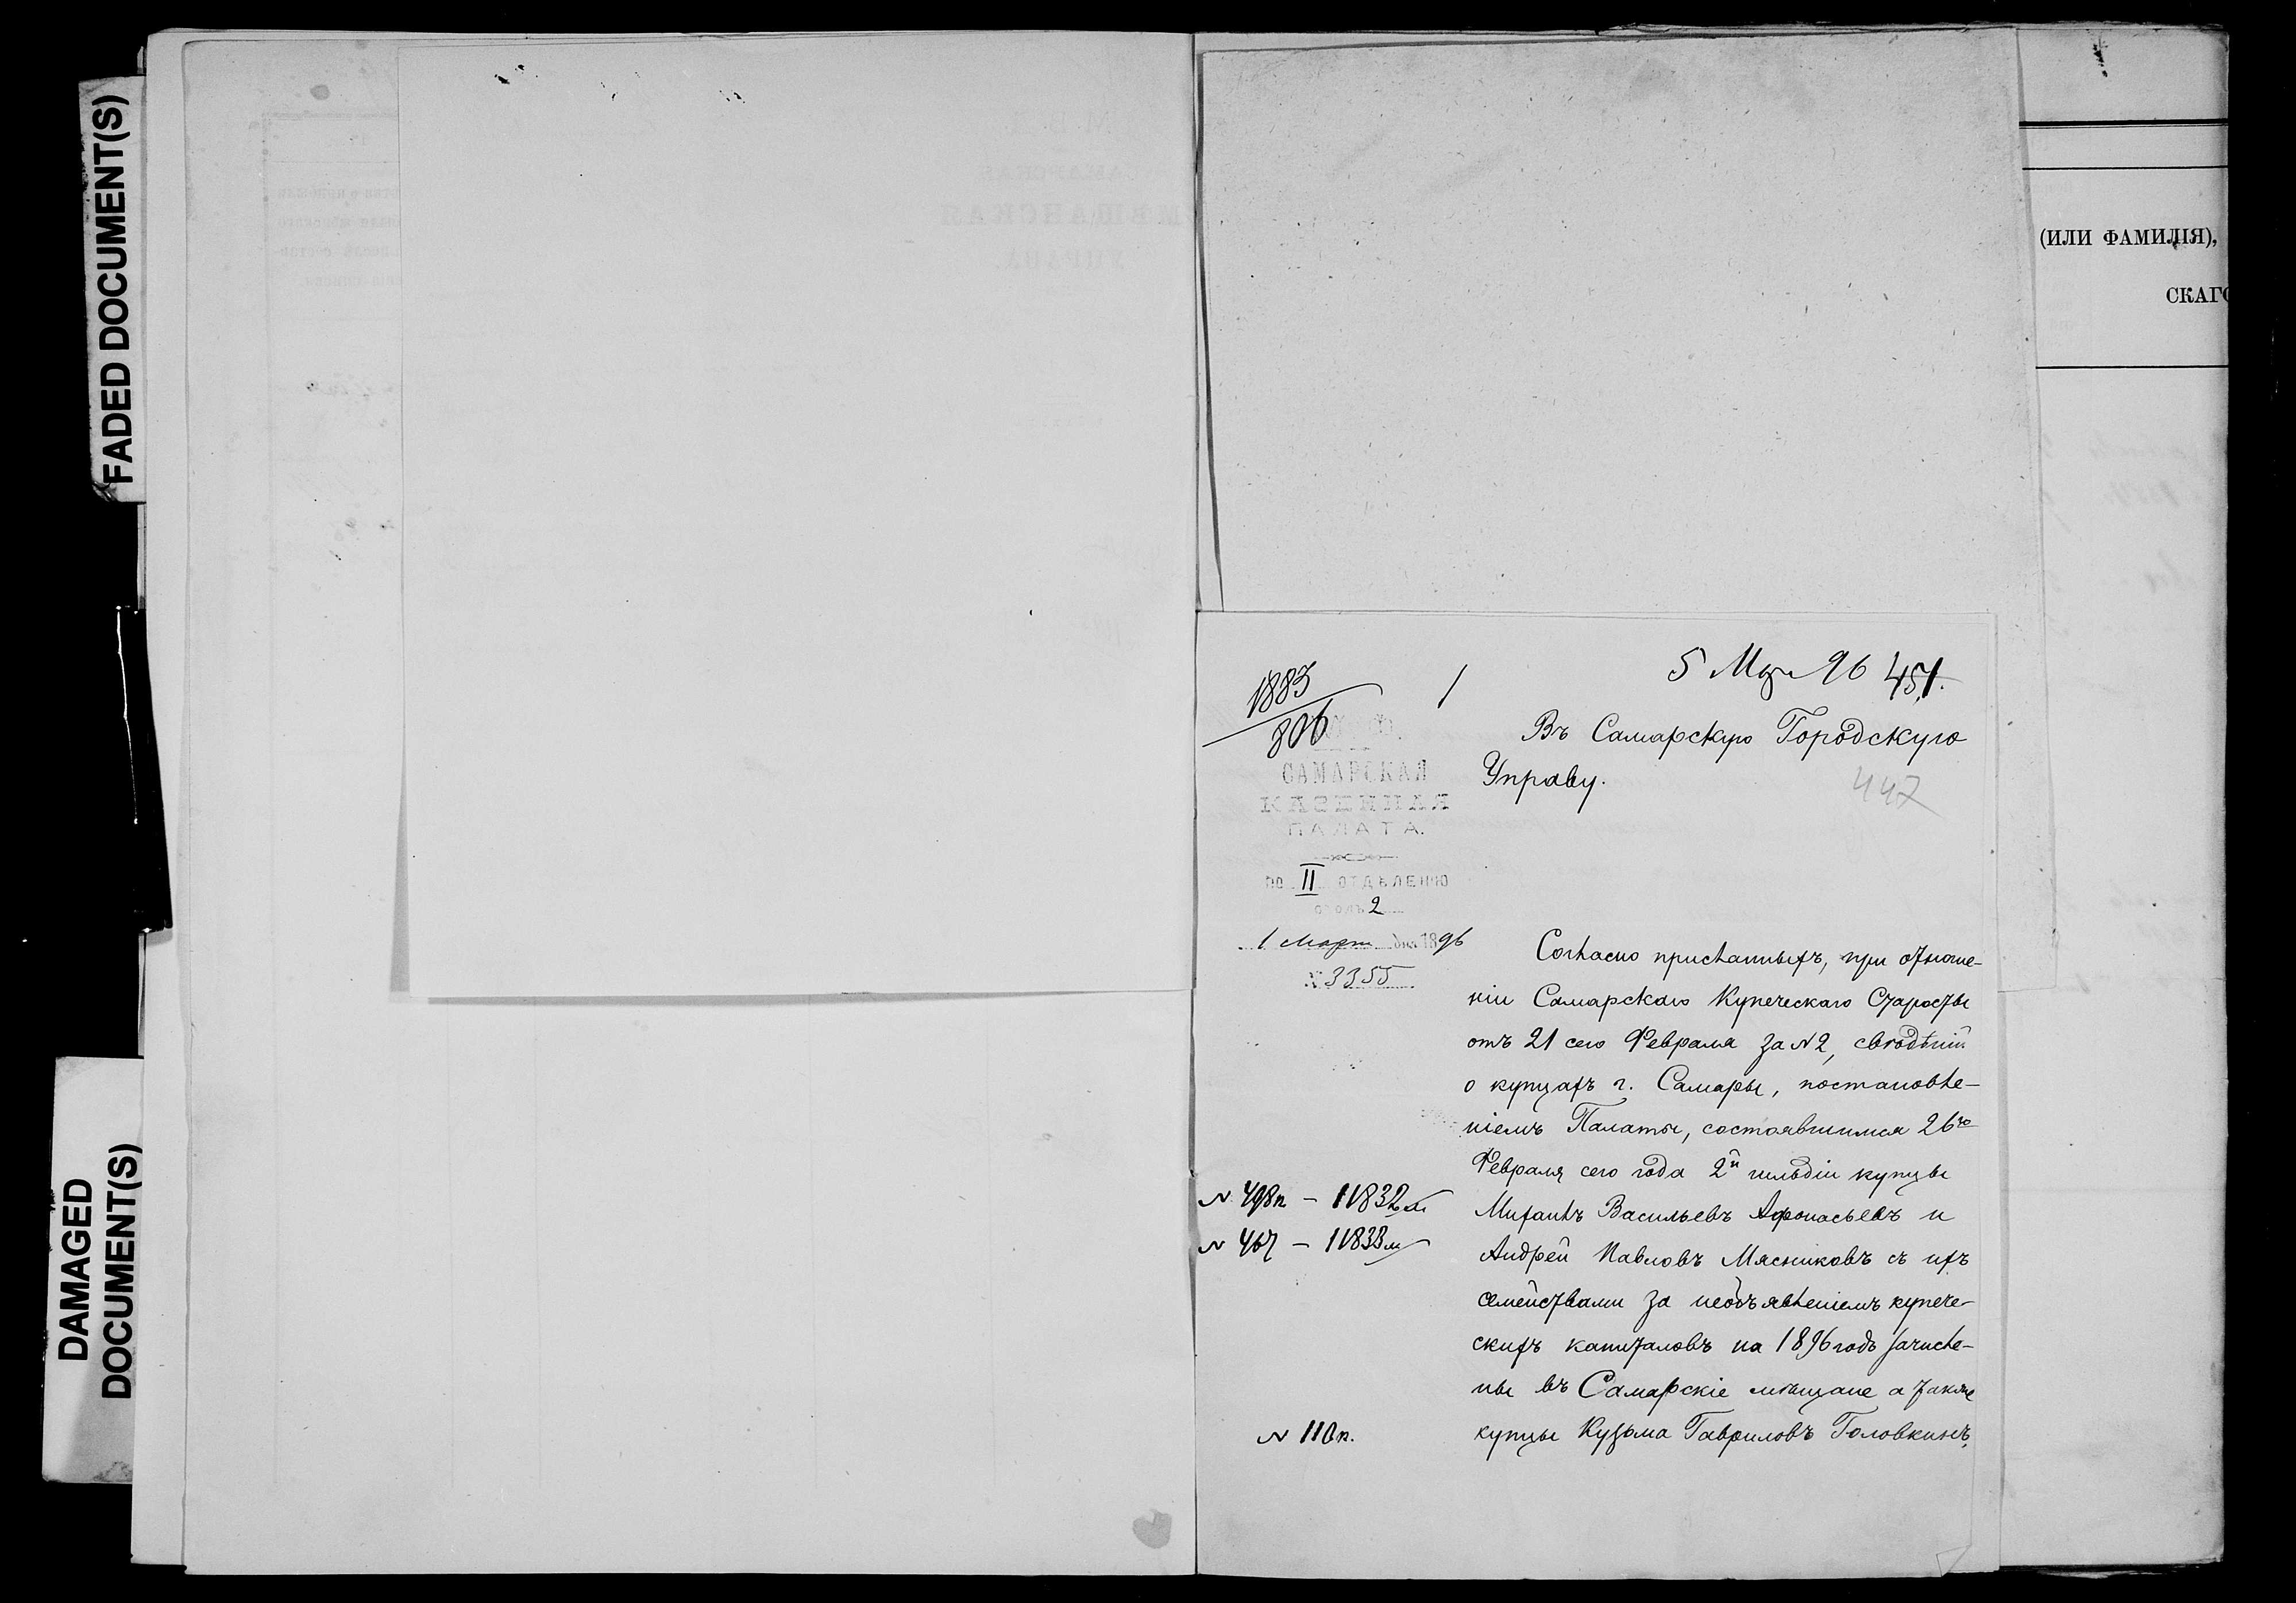 FADED DOCUMENT(S)
DAMAGED
DOCUMENT(S)
(ИЛИ ФАМИЛІЯ),
СКАГО
1883
806
5 Мар 96
451.
Въ Самарскую Городскую
Управу.
447
САМАРСКАЯ
КАЗЕННАЯ
ПАЛАТА.
ПО II ОТДѢЛЕНІЮ
столъ 2
1 Март дня 1896
№ 3355
Согласно присланныхъ, при отноше-
ніи Самарскаго Купеческаго Старосты
отъ 21 сего Февраля за № 2, свѣдѣній
о купцахъ г. Самары, постановле-
ніемъ Палаты, состоявшимся 26го
Февраля сего года 2й гильдіи купцы
Михаилъ Васильевъ Афонасьевъ и
Андрей Павловъ Мясниковъ съ ихъ
семействами за необъявленіемъ купече-
скихъ капиталовъ на 1896 годъ зачисле-
ны въ Самарскіе мѣщане а также
купцы Кузьма Гавриловъ Головкинъ,
№ 498п – 11832м
№ 467 – 11833м
№ 110п.